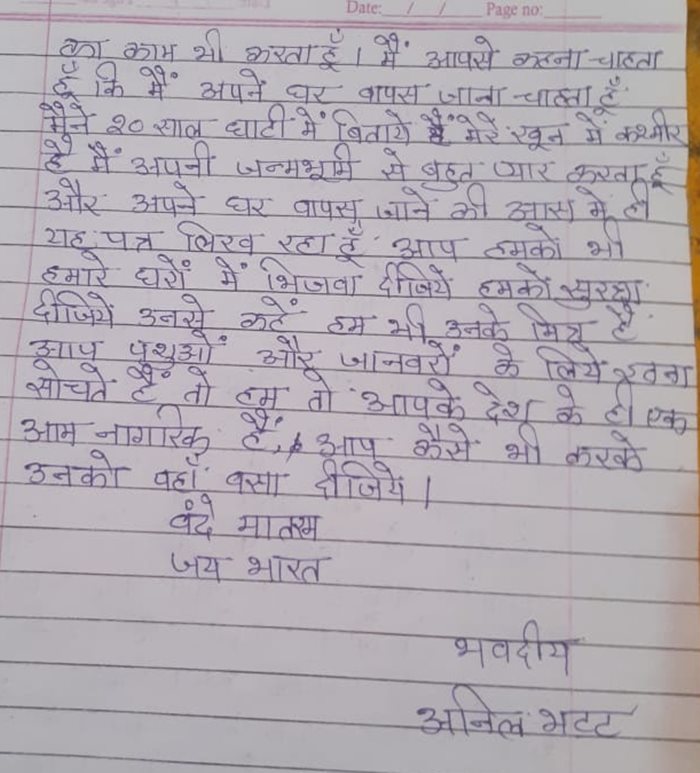 Date: / / Page no:
का काम भी करता हूँ । मैं आपसे कहना चाहता
हूँ कि मैं अपने घर वापस जाना चाहता हूँ
मैंने २० साल घाटी में बिताये है मेरे खून में कश्मीर
है मैं अपनी जन्मभूमि से बहुत प्यार करता हूँ
और अपने घर वापस जाने की आस में ही
यह पत्र लिख रहा हूँ आप हमको भी
हमारे घरों में भिजवा दीजिये हमको सुरक्षा
दीजिये उनसे कहें हम भी उनके मित्र हैं
आप पशुओं और जानवरों के लिये इतना
सोचते हैं तो हम तो आपके देश के ही एक
आम नागरिक हैं, आप कैसे भी करके
उनको वहाँ बसा दीजिये ।
वंदे मातरम
जय भारत
भवदीय
अनिल भटट